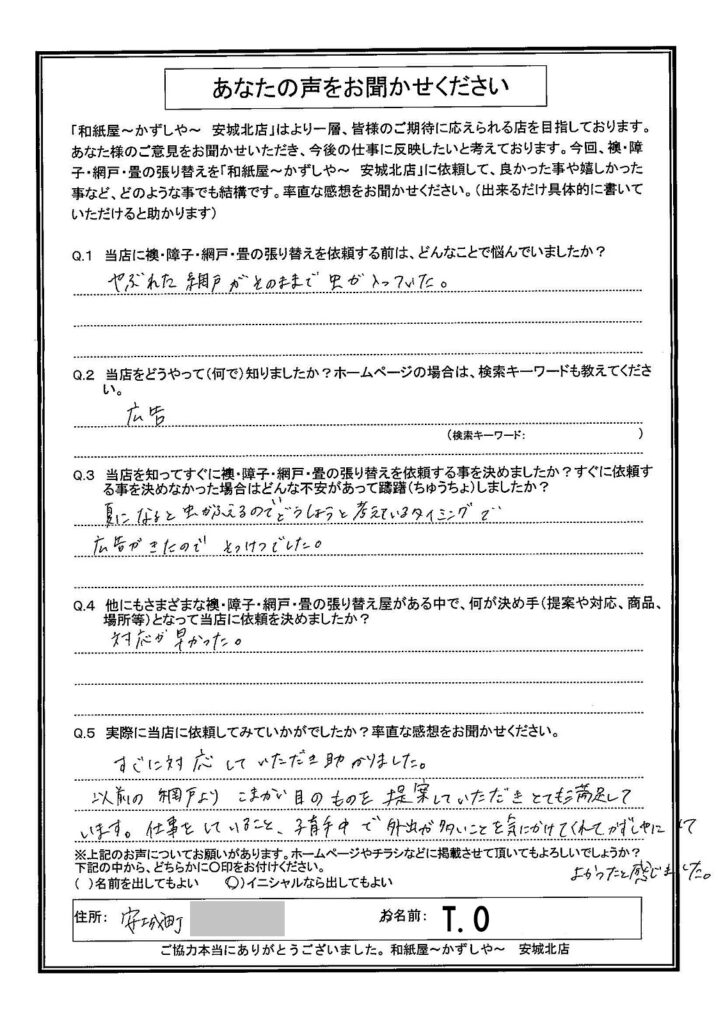 あなたの声をお聞かせください
「和紙屋～かずしや～　安城北店」はより一層、皆様のご期待に応えられる店を目指しております。
あなた様のご意見をお聞かせいただき、今後の仕事に反映したいと考えております。今回、襖・障
子・網戸・畳の張り替えを「和紙屋～かずしや～　安城北店」に依頼して、良かった事や嬉しかった
事など、どのような事でも結構です。率直な感想をお聞かせください。（出来るだけ具体的に書いて
いただけると助かります）
Q.1　当店に襖・障子・網戸・畳の張り替えを依頼する前は、どんなことで悩んでいましたか？
やぶれた網戸がそのままで虫が入っていた。
Q.2　当店をどうやって（何で）知りましたか？ホームページの場合は、検索キーワードも教えてくださ
い。
広告
（検索キーワード:　　　　　　　　　　）
Q.3　当店を知ってすぐに襖・障子・網戸・畳の張り替えを依頼する事を決めましたか？すぐに依頼す
る事を決めなかった場合はどんな不安があって躊躇（ちゅうちょ）しましたか？
夏になると虫がふえるのでどうしようと考えているタイミングで
広告がきたので とっけつでした。
Q.4　他にもさまざまな襖・障子・網戸・畳の張り替え屋がある中で、何が決め手（提案や対応、商品、
場所等）となって当店に依頼を決めましたか？
対応が早かった。
Q.5　実際に当店に依頼してみていかがでしたか？率直な感想をお聞かせください。
すぐに対応していただき助かりました。
以前の網戸より こまかい目のものを提案していただきとても満足して
います。仕事をしていること、子育中で外出が多いことを気にかけてくれてかずしやにして
よかったと感じました。
※上記のお声についてお願いがあります。ホームページやチラシなどに掲載させて頂いてもよろしいでしょうか？
下記の中から、どちらかに〇印をお付けください。
（　）名前を出してもよい　　（〇）イニシャルなら出してもよい
住所: 安城町　　お名前: T.O
ご協力本当にありがとうございました。和紙屋～かずしや～　安城北店